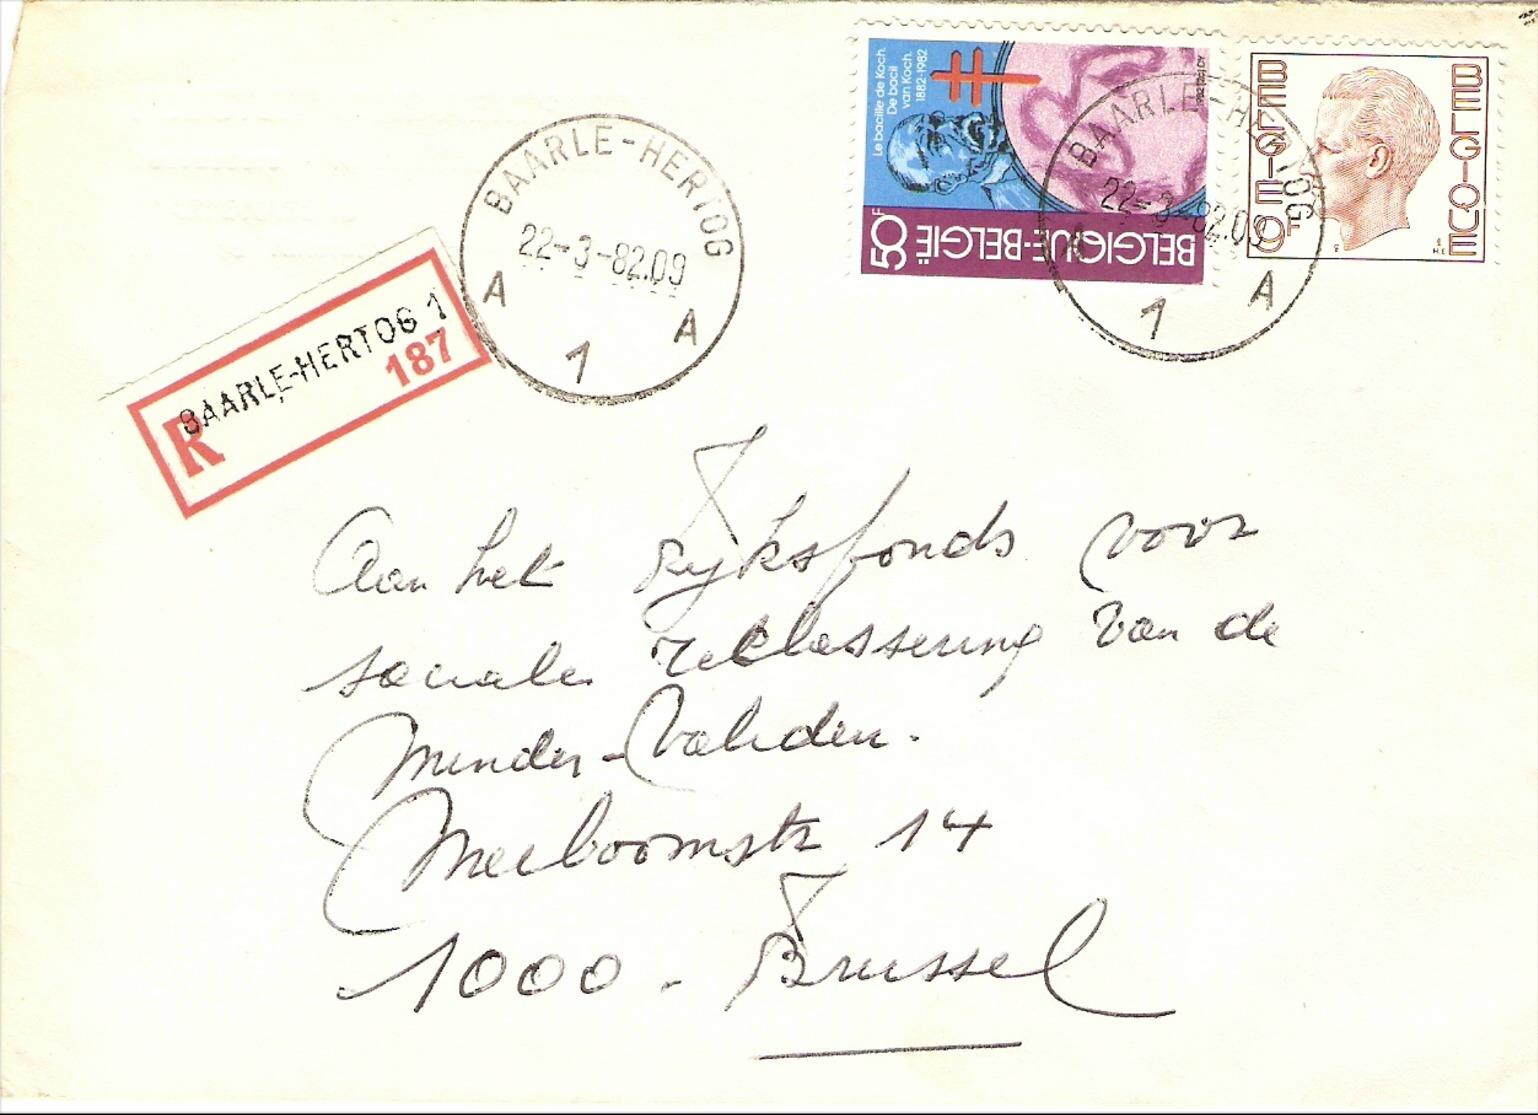 Le bacille de Koch.
De bacil
van Koch.
1882-1982
BELGIQUE-BELGIË
50F
BELGIË
9F
BELGIQUE
BAARLE-HERTOG
22-3-82.09
A
A
1
BAARLE-HERTOG
22-3-82.09
A
A
1
BAARLE-HERTOG 1
R
187
Aan het Rijksfonds voor
sociale reclassering van de
Minder-Validen.
Meiboomstr 14
1000. Brussel